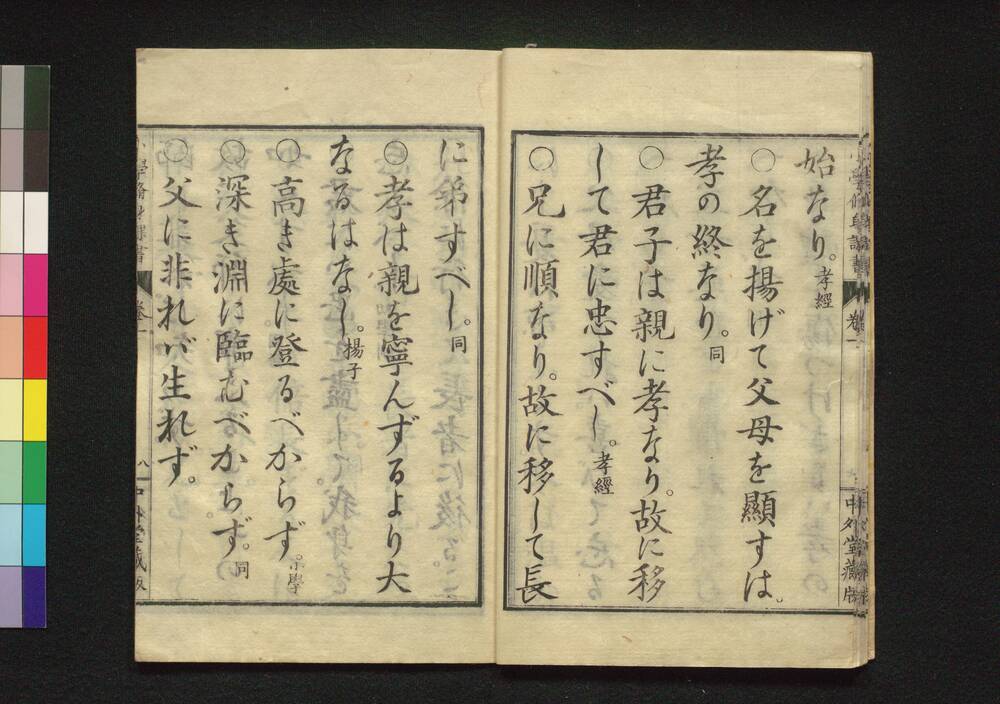 始なり。孝經
○名を揚げて父母を顯すは。
孝の終なり。同
○君子は親に孝なり。故に移
して君に忠すべし。孝經
○兄に順なり。故に移して長
に弟すべし。同
○孝は親を寧んずるより大
なるはなし。揚子
○高き處に登るべからず。小學
○深き淵に臨むべからず。同
○父に非れバ生れず。
中外堂藏版